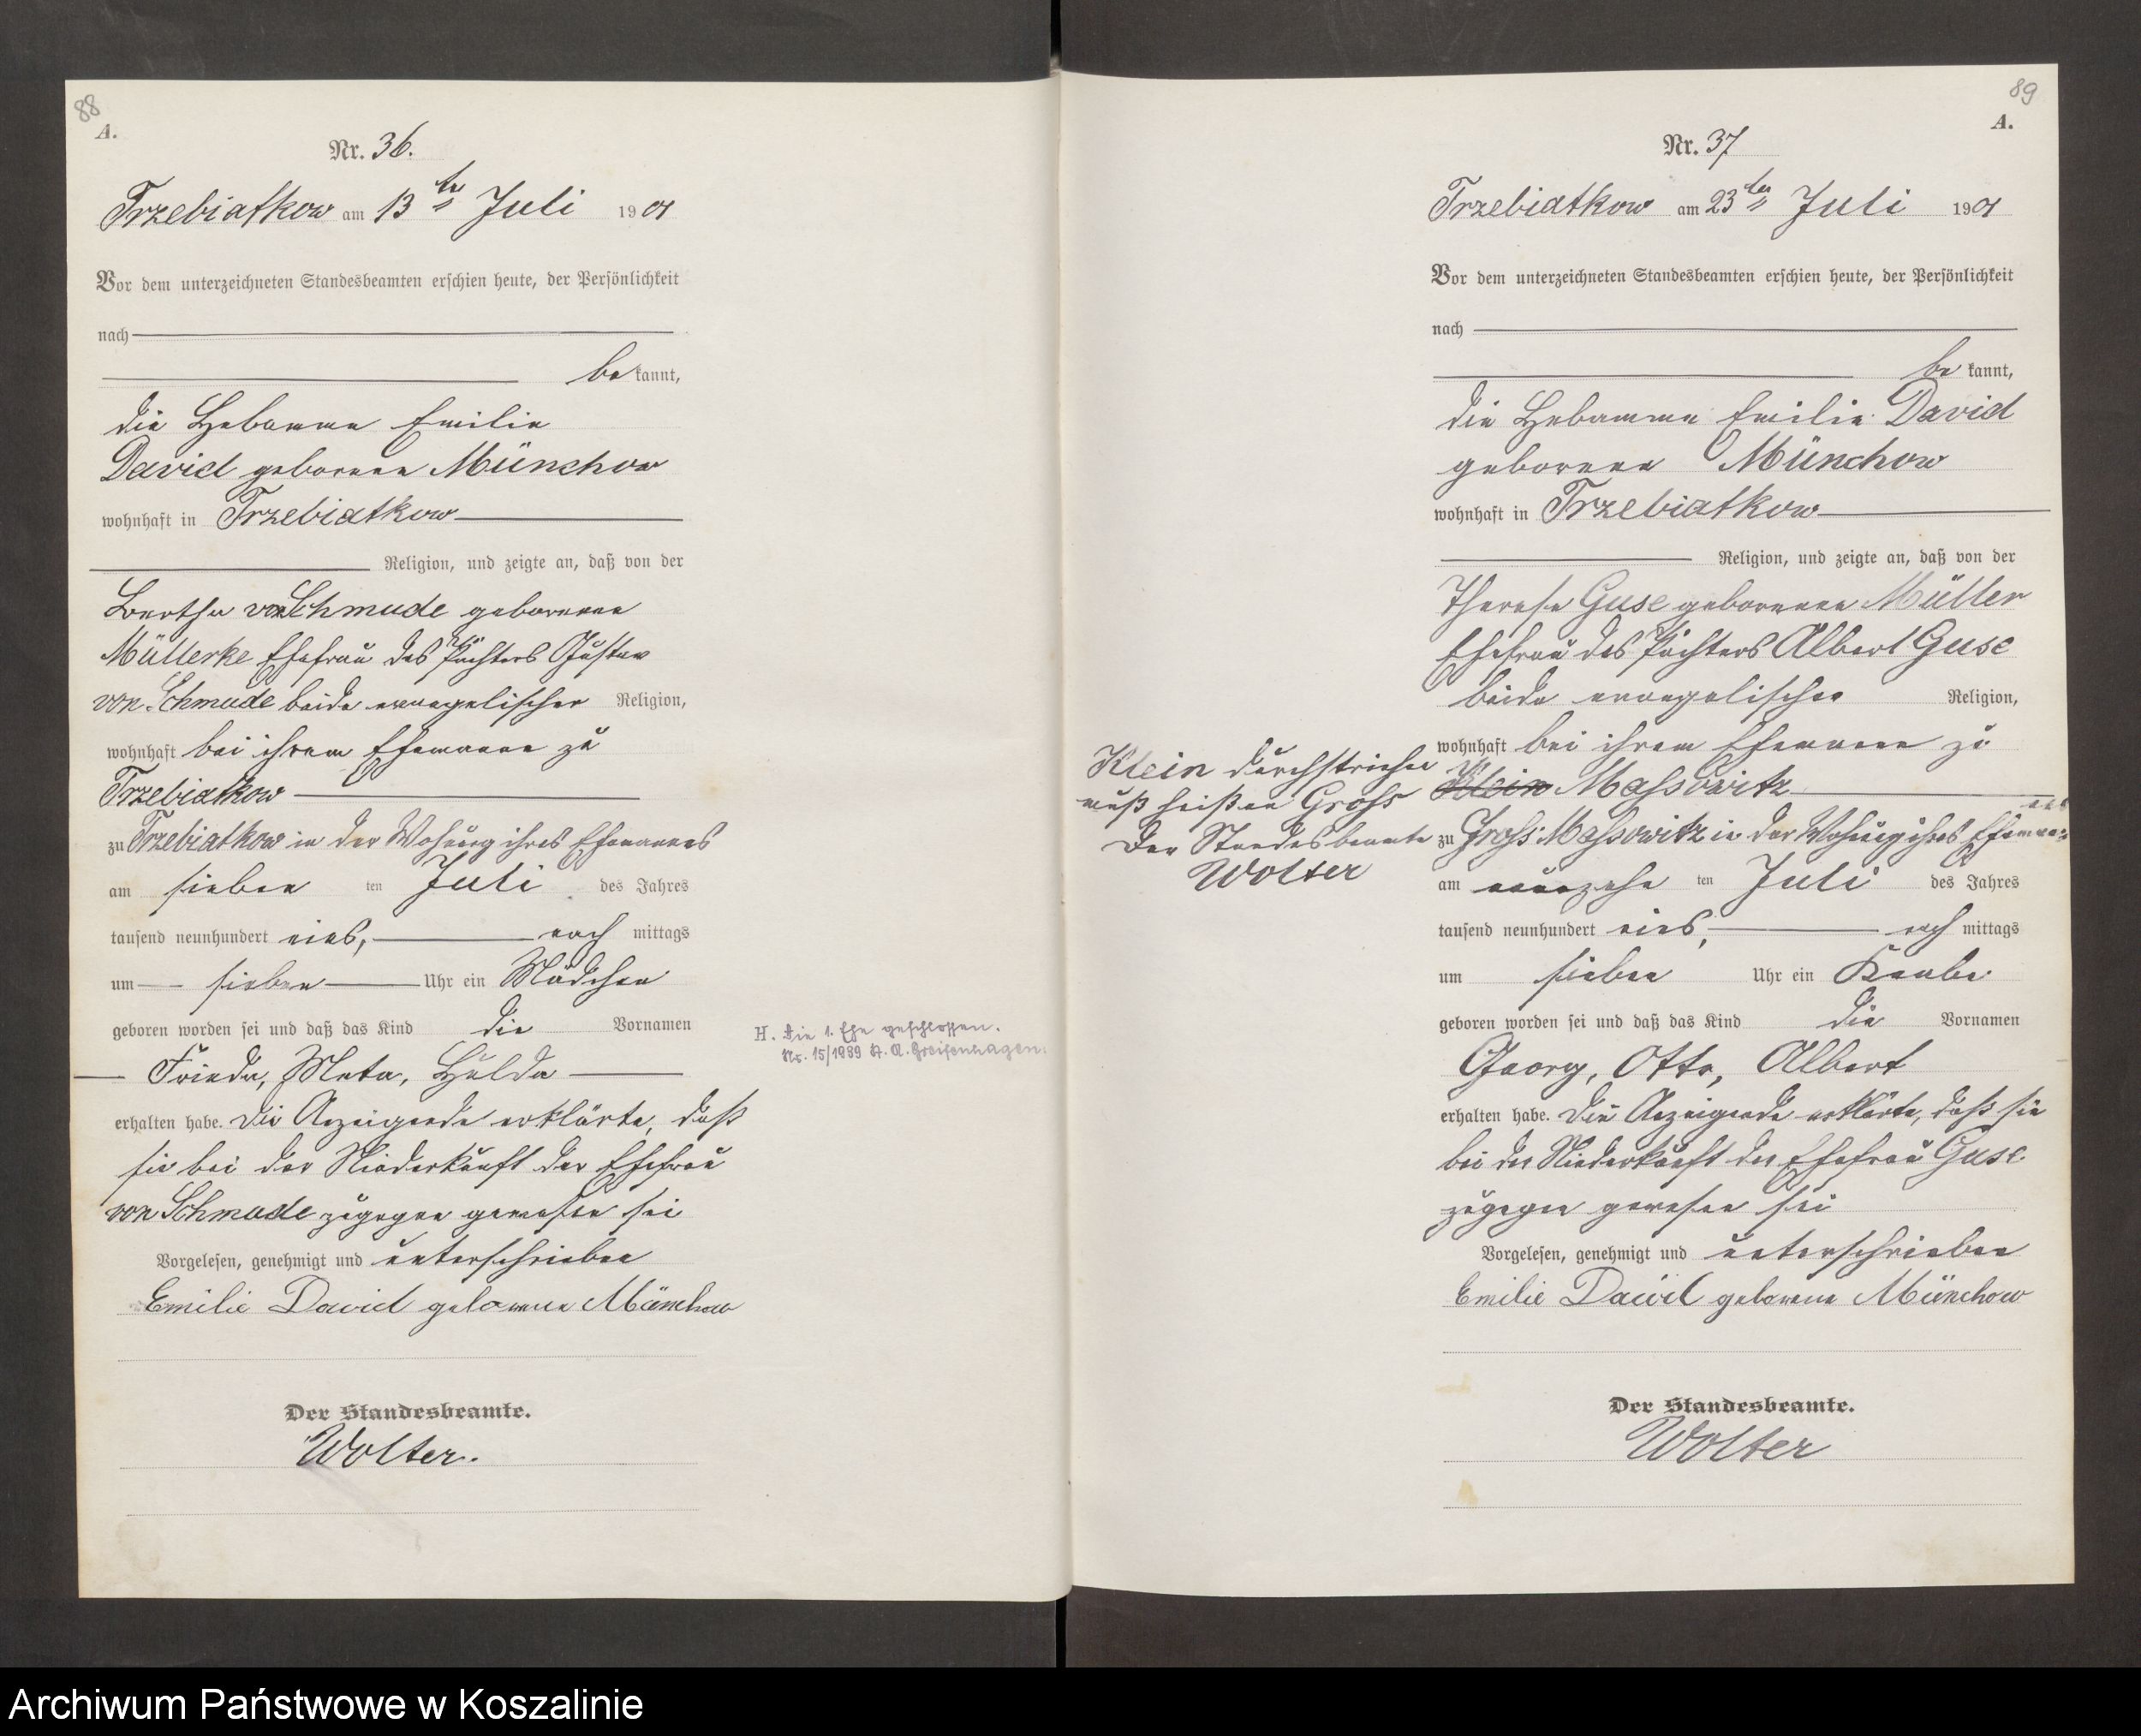 88
A.
Nr. 36.
Trzebiatkow am 13ten Juli 1901
Vor dem unterzeichneten Standesbeamten erschien heute, der Persönlichkeit
nach
be kannt,
die Hebamme Emilie
David geborene Münchow
wohnhaft in Trzebiatkow
Religion, und zeigte an, daß von der
Bertha von Schmude geborenen
Müllerke Ehefrau des Pächters Gustav
von Schmude beide evangelischer Religion,
wohnhaft bei ihrem Ehemanne zu
Trzebiatkow
zu Trzebiatkow in der Wohnung ihres Ehemannes
am sieben ten Juli des Jahres
tausend neunhundert eins, nach mittags
um sieben Uhr ein Mädchen
geboren worden sei und daß das Kind die Vornamen
Frieda, Meta, Hulda
erhalten habe. Die Anzeigende erklärte, daß
sie bei der Niederkunft der Ehefrau
von Schmude zugegen gewesen sei
Vorgelesen, genehmigt und unterschrieben
Emilie David geborene Münchow
Der Standesbeamte.
Wolter.
H. Die 1. Ehe geschlossen.
Nr. 15/1939 St. A. Greifenhagen.
89
A.
Nr. 37
Trzebiatkow am 23ten Juli 1901
Vor dem unterzeichneten Standesbeamten erschien heute, der Persönlichkeit
nach
be kannt,
die Hebamme Emilie David
geborene Münchow
wohnhaft in Trzebiatkow
Religion, und zeigte an, daß von der
Therese Guse geborenen Müller
Ehefrau des Pächters Albert Guse
beide evangelischer Religion,
wohnhaft bei ihrem Ehemanne zu
Klein Massowitz
zu Gross Massowitz in der Wohnung ihres Ehemannes
am neunzehn ten Juli des Jahres
tausend neunhundert eins, nach mittags
um sieben Uhr ein Knabe
geboren worden sei und daß das Kind die Vornamen
Georg, Otto, Albert
erhalten habe. Die Anzeigende erklärte, daß sie
bei der Niederkunft der Ehefrau Guse
zugegen gewesen sei
Vorgelesen, genehmigt und unterschrieben
Emilie David geborene Münchow
Der Standesbeamte.
Wolter
Klein durchstrichen
muß heißen Gross
Der Standesbeamte
Wolter
Archiwum Państwowe w Koszalinie